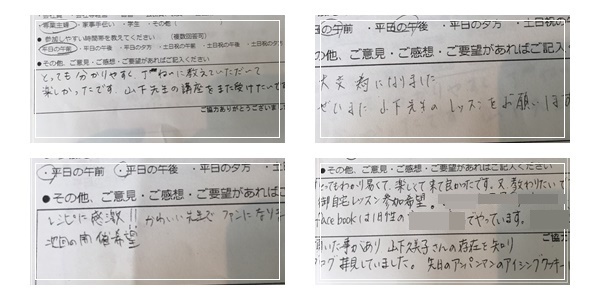 ・専業主婦 ・家事手伝い ・学生 ・その他（
● 参加しやすい時間帯を教えてください （複数回答可）
平日の午前 ・平日の午後 ・平日の夕方 ・土日祝の午前 ・土日祝の午後 ・土日祝の夕方
●その他、ご意見・ご感想・ご要望があればご記入ください
とっても分かりやすく、丁ねいに教えていただいて
楽しかったです。山下先生の講座をまた受けたいです
ご協力ありがとうございまし
日の午前 ・平日の午後 ・平日の夕方 ・土日祝の
の他、ご意見・ご感想・ご要望があればご記入
大変 為になりました
ぜひまた 山下先生の レッスンを お願いします
・平日の午前 ・平日の午後 ・平日の夕方 ・土
●その他、ご意見・ご感想・ご要望があれば
レシピに感激!! かわいい先生で ファンになりま
次回の開催希望
他、ご意見・ご感想・ご要望があればご記入ください
とってもわかり易くて、楽しくて 来て良かったです。又、教わりたいで
御自宅レッスン参加希望。
facebookは旧姓の でやっています。
ご協力
聞いた事があり 山下久美子さんの存在を知り
ブログ 拝見していました。 先日のアンパンマンのアイシングクッキー